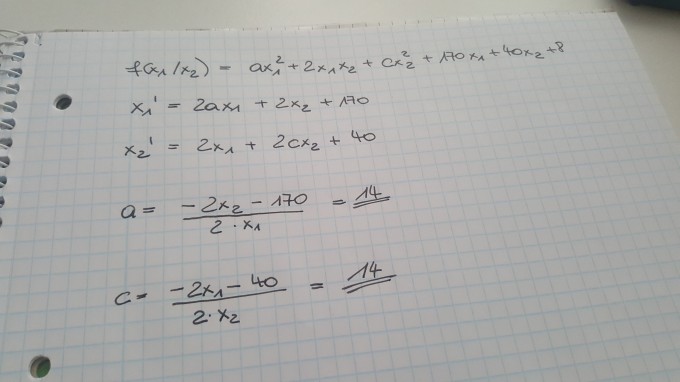 f(x₁/x₂) = ax₁² + 2x₁x₂ + cx₂² + 170x₁ + 40x₂ + 8
x₁' = 2ax₁ + 2x₂ + 170
x₂' = 2x₁ + 2cx₂ + 40
a = (-2x₂ - 170) / (2 · x₁) = 14
c = (-2x₁ - 40) / (2 · x₂) = 14